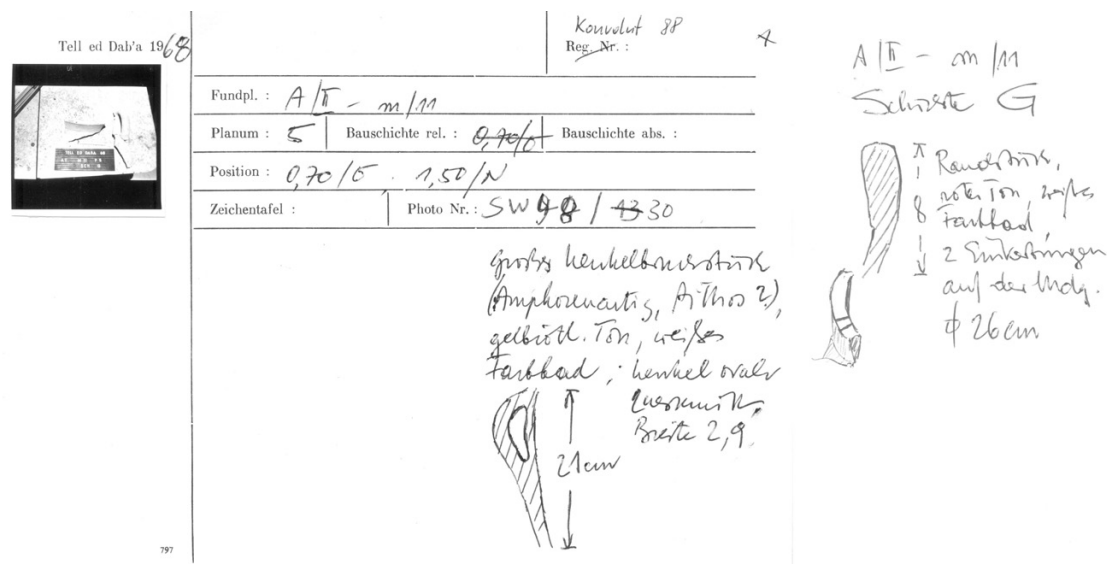 Tell ed Dab'a 1968
Konvolut 88
Reg. Nr. :
Fundpl. : A/II - m/11
Planum : 5 Bauschichte rel. : 0,70/0 Bauschichte abs. :
Position : 0,70/E . 1,50/N
Zeichentafel : Photo Nr. : SW 98 / 43 30
großes Henkelbruchstück
(Amphorenartig, Pithos?),
gelbrötl. Ton, weißes
Farbbad, Henkel ovaler
Querschnitt,
Breite 2,9.
21cm
797
A/II - m/11
Schichte G
Randstück,
roter Ton, weißes
Farbbad,
8
2 Einkerbungen
auf der Mdg.
ϕ 26cm